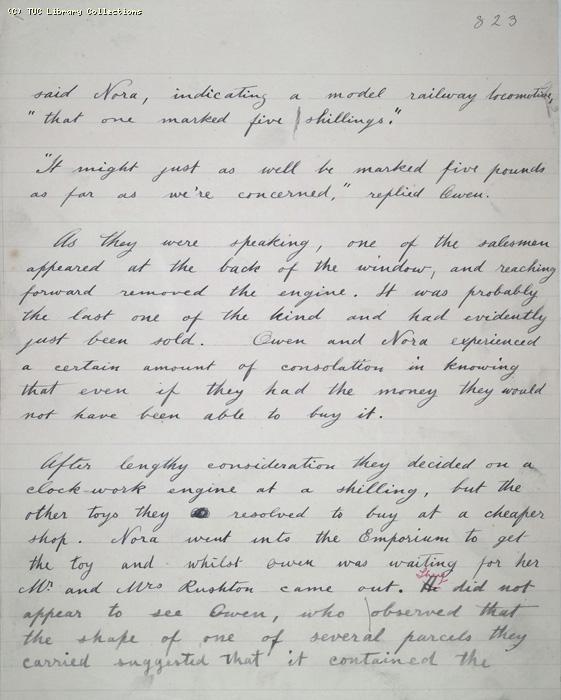 (C) TUC Library Collections
823
said Nora, indicating a model railway locomotive,
"that one marked five shillings."
"It might just as well be marked five pounds
as far as we're concerned," replied Owen.
As they were speaking, one of the salesmen
appeared at the back of the window, and reaching
forward removed the engine. It was probably
the last one of the kind and had evidently
just been sold. Owen and Nora experienced
a certain amount of consolation in knowing
that even if they had the money they would
not have been able to buy it.
After lengthy consideration they decided on a
clock-work engine at a shilling, but the
other toys they resolved to buy at a cheaper
shop. Nora went into the Emporium to get
the toy and whilst Owen was waiting for her
They
Mr and Mrs Rushton came out. He did not
appear to see Owen, who observed that
the shape of one of several parcels they
carried suggested that it contained the